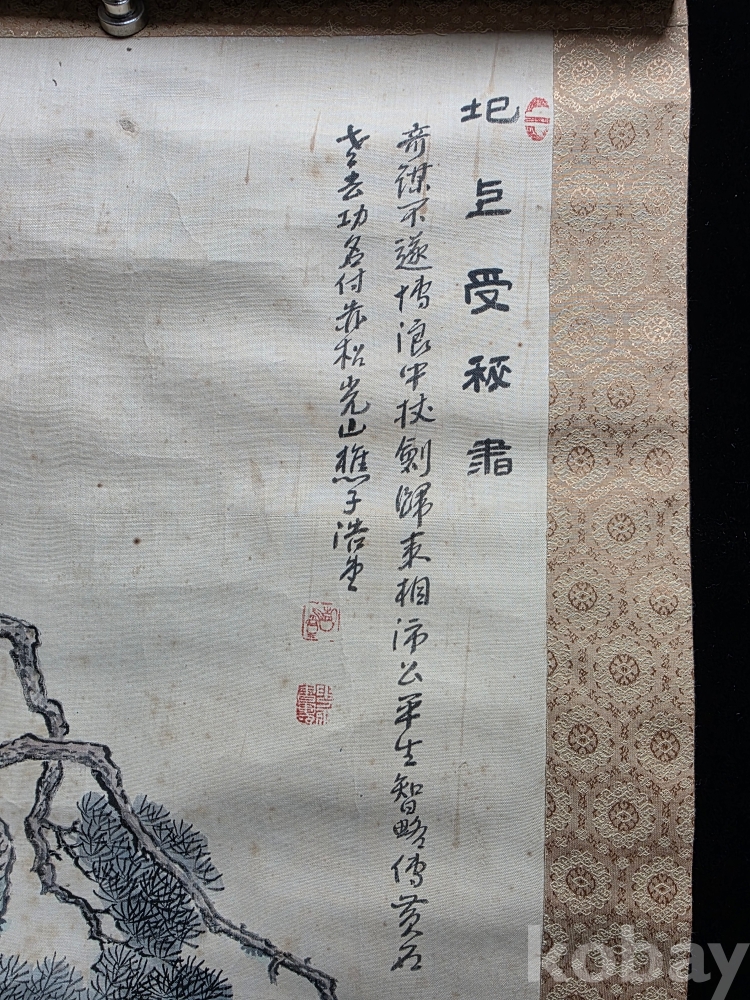 圯上受秘書
奇謀不遂博浪中杖劍歸來相沛公平生智略傳黃石
老去功名付赤松光山樵子浩堂
kobay